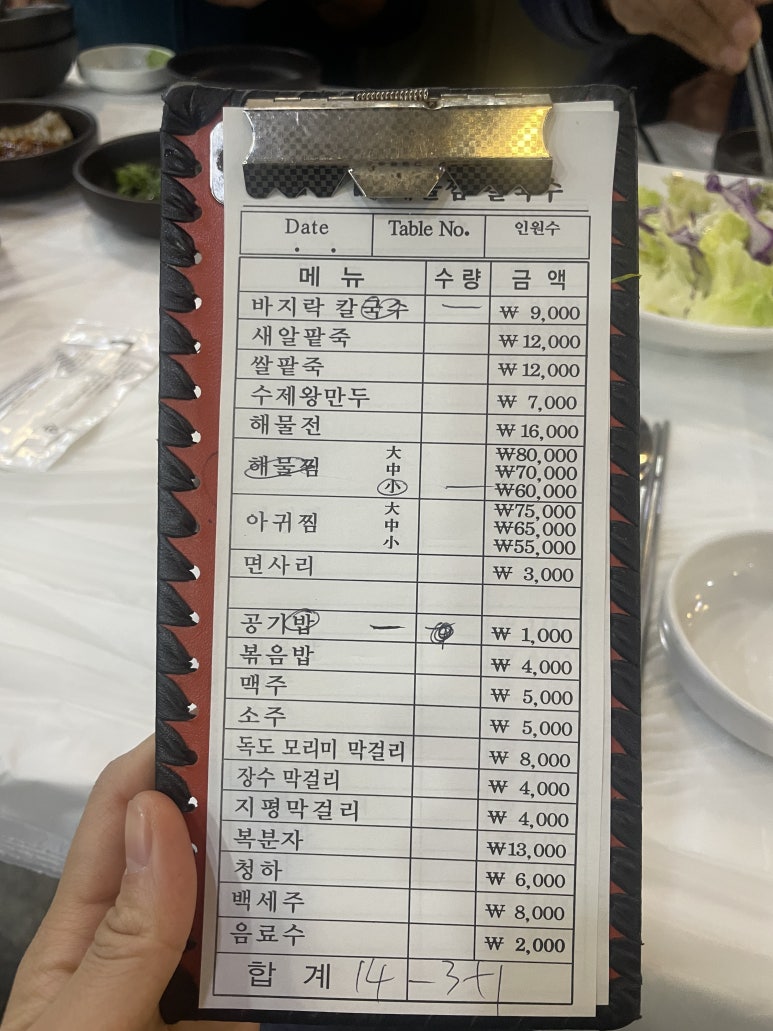 Date Table No. 인원수
메 뉴 수 량 금 액
바지락 칼국수 一 ₩ 9,000
새알팥죽 ₩ 12,000
쌀팥죽 ₩ 12,000
수제왕만두 ₩ 7,000
해물전 ₩ 16,000
해물찜 大 ₩80,000
中 ₩70,000
小 一 ₩60,000
아귀찜 大 ₩75,000
中 ₩65,000
小 ₩55,000
면사리 ₩ 3,000
공기밥 一 ₩ 1,000
볶음밥 ₩ 4,000
맥주 ₩ 5,000
소주 ₩ 5,000
독도 모리미 막걸리 ₩ 8,000
장수 막걸리 ₩ 4,000
지평막걸리 ₩ 4,000
복분자 ₩13,000
청하 ₩ 6,000
백세주 ₩ 8,000
음료수 ₩ 2,000
합 계 14-3+1